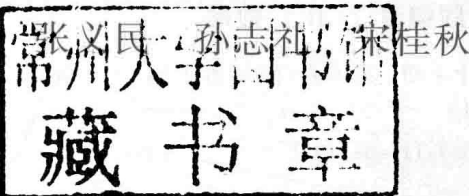 张义民 孙志礼 宋桂秋
常州大学图书馆
藏书章